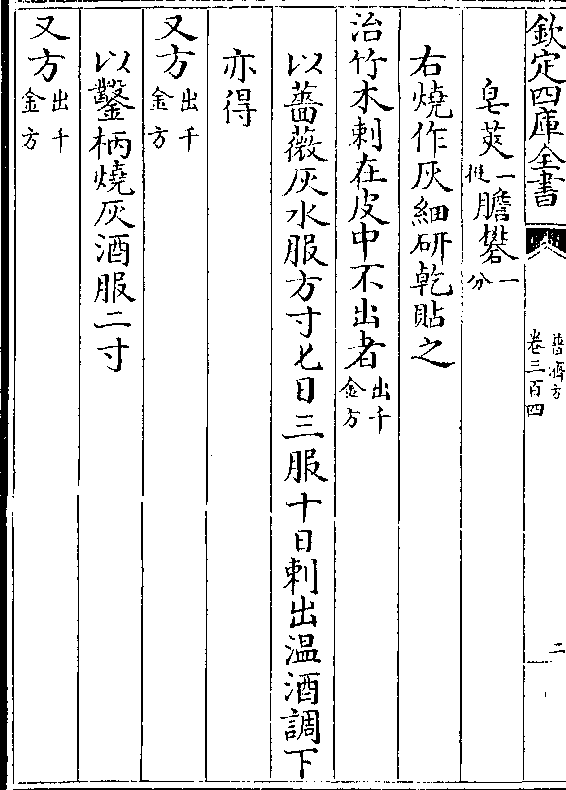 欽定四庫全書
普濟方
卷三百四
二
皂莢一挺 膽礬一分
右燒作灰細研乾貼之
治竹木刺在皮中不出者出千金方
以薔薇灰水服方寸匕日三服十日刺出温酒調下
亦得
又方出千金方
以鑿柄燒灰酒服二寸
又方出千金方